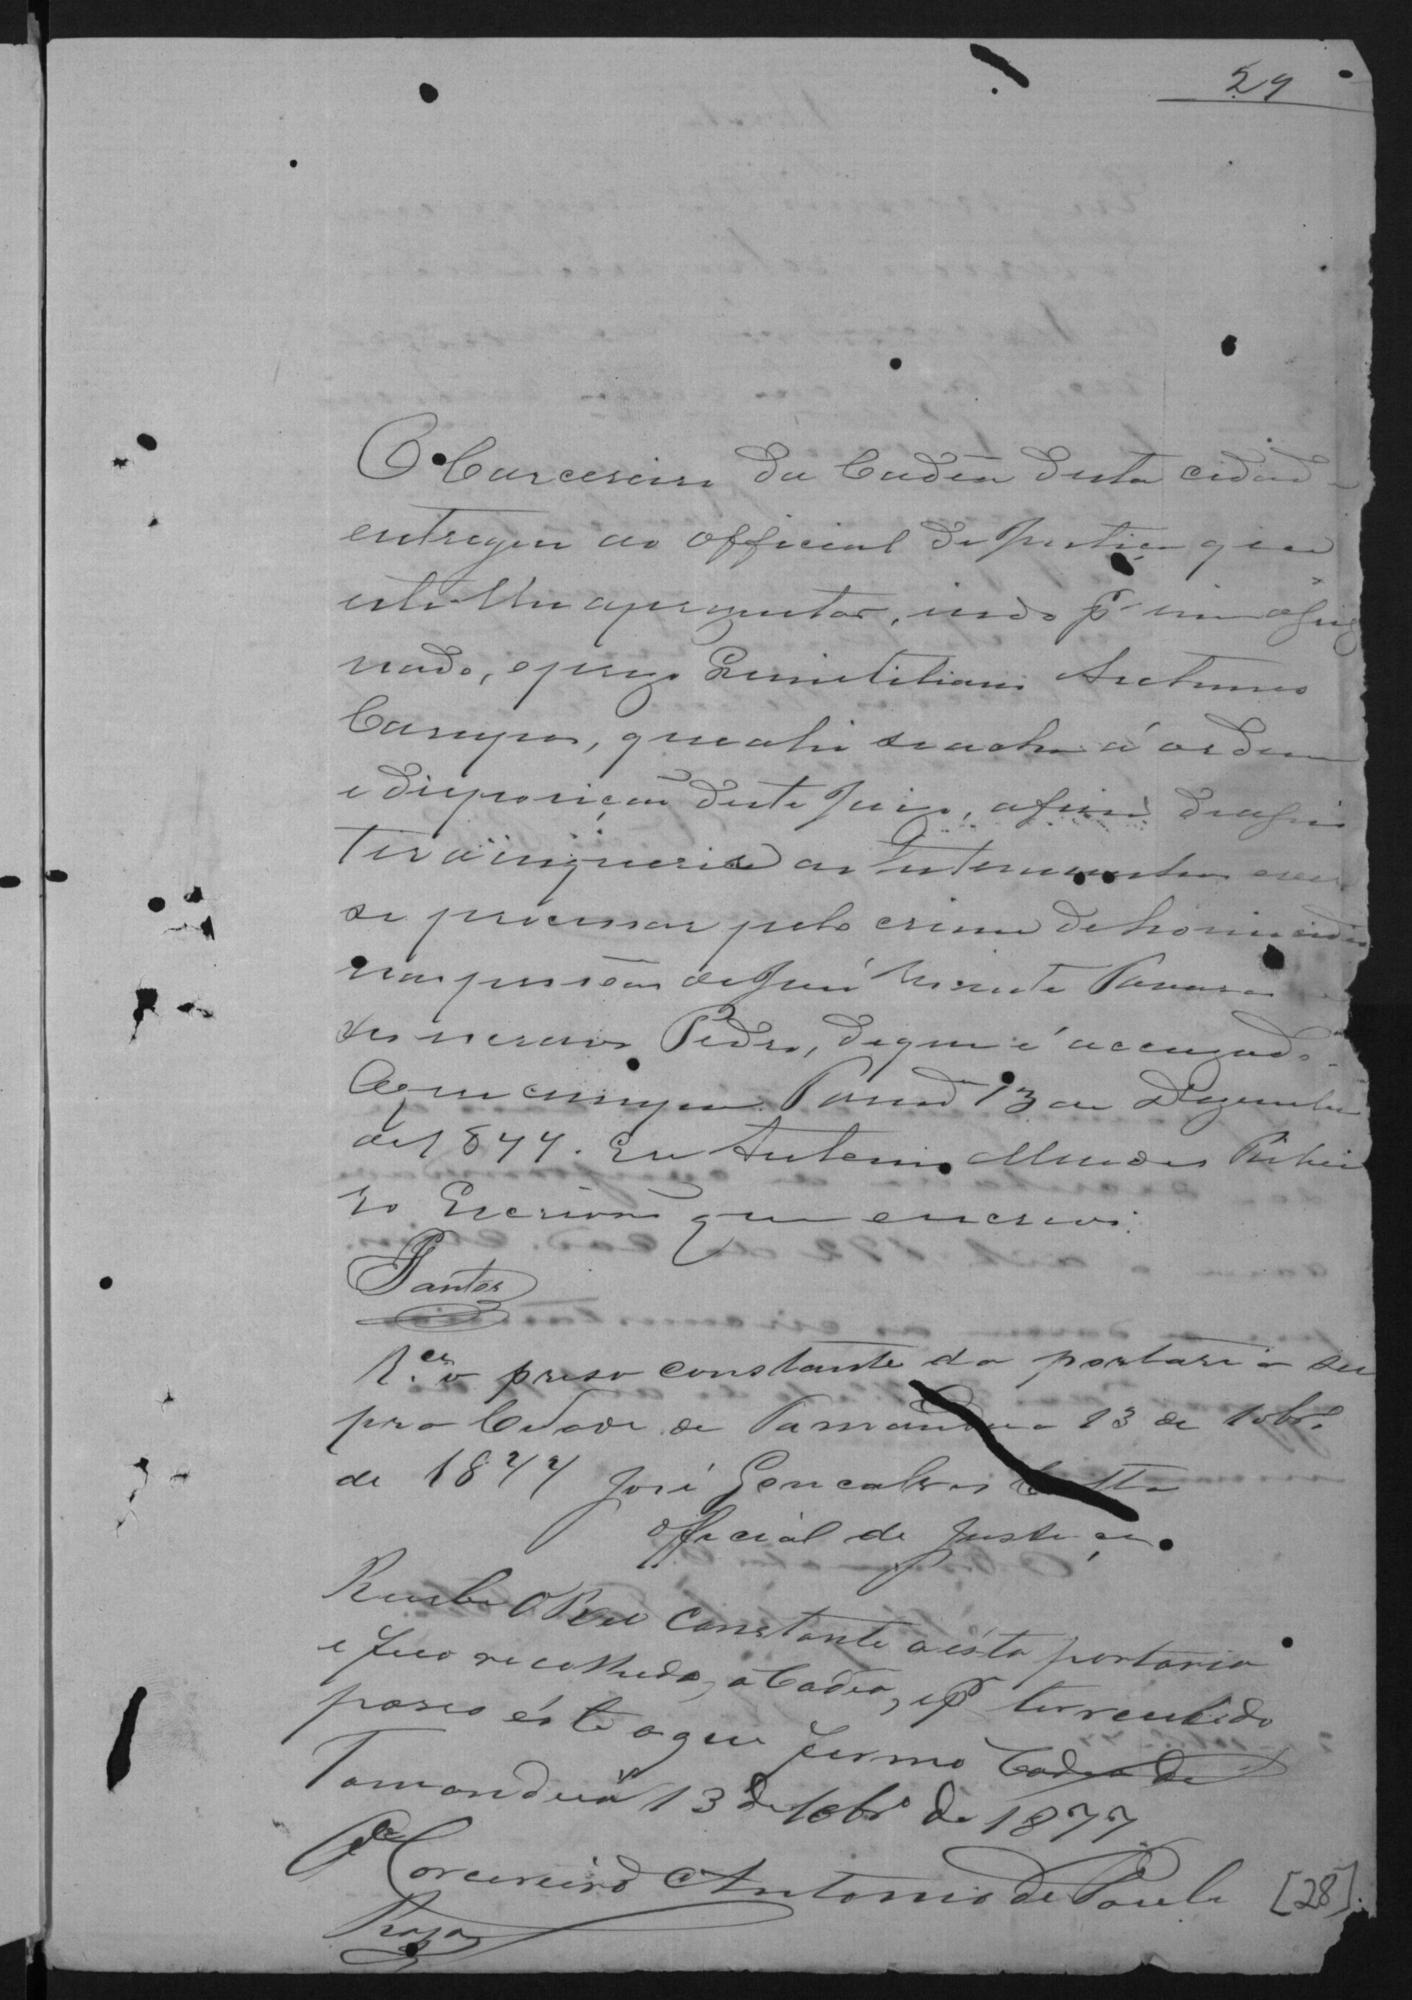 29
O Carcereiro da Cadea desta cidade
entregue ao official de Justiça que
este lhe apresentar, indo pr mim assig
nado, o prezo Hermitiliano Antunes
Campos, que ahi se acha á ordem
e disposição deste Juizo, afim de assis
tir a inquerição as testemunhas
se processar pelo crime de homicidio
nas pessoas de José Vicente
do escravo Pedro, de que é accuzado.
O que cumpra. Tamd 13 de Dezembro
de 1877. Eu Antonio Mendes Ribei
ro Escrivão que escrevi.
Santos
Rcer o preso constante da portaria su
pra Cidade de Tamandua 13 de 10bro
de 1877 José Goncalves Costa
official de Justiça
Recebi O Reo constante a ésta portaria
e fica recolhido, a Cadea, e pr ter recebido
passo éste a que firmo Cadea de
Tamanduá 13 de 10bro de 1877
O Carcereiro Antonio de Paula
[28].